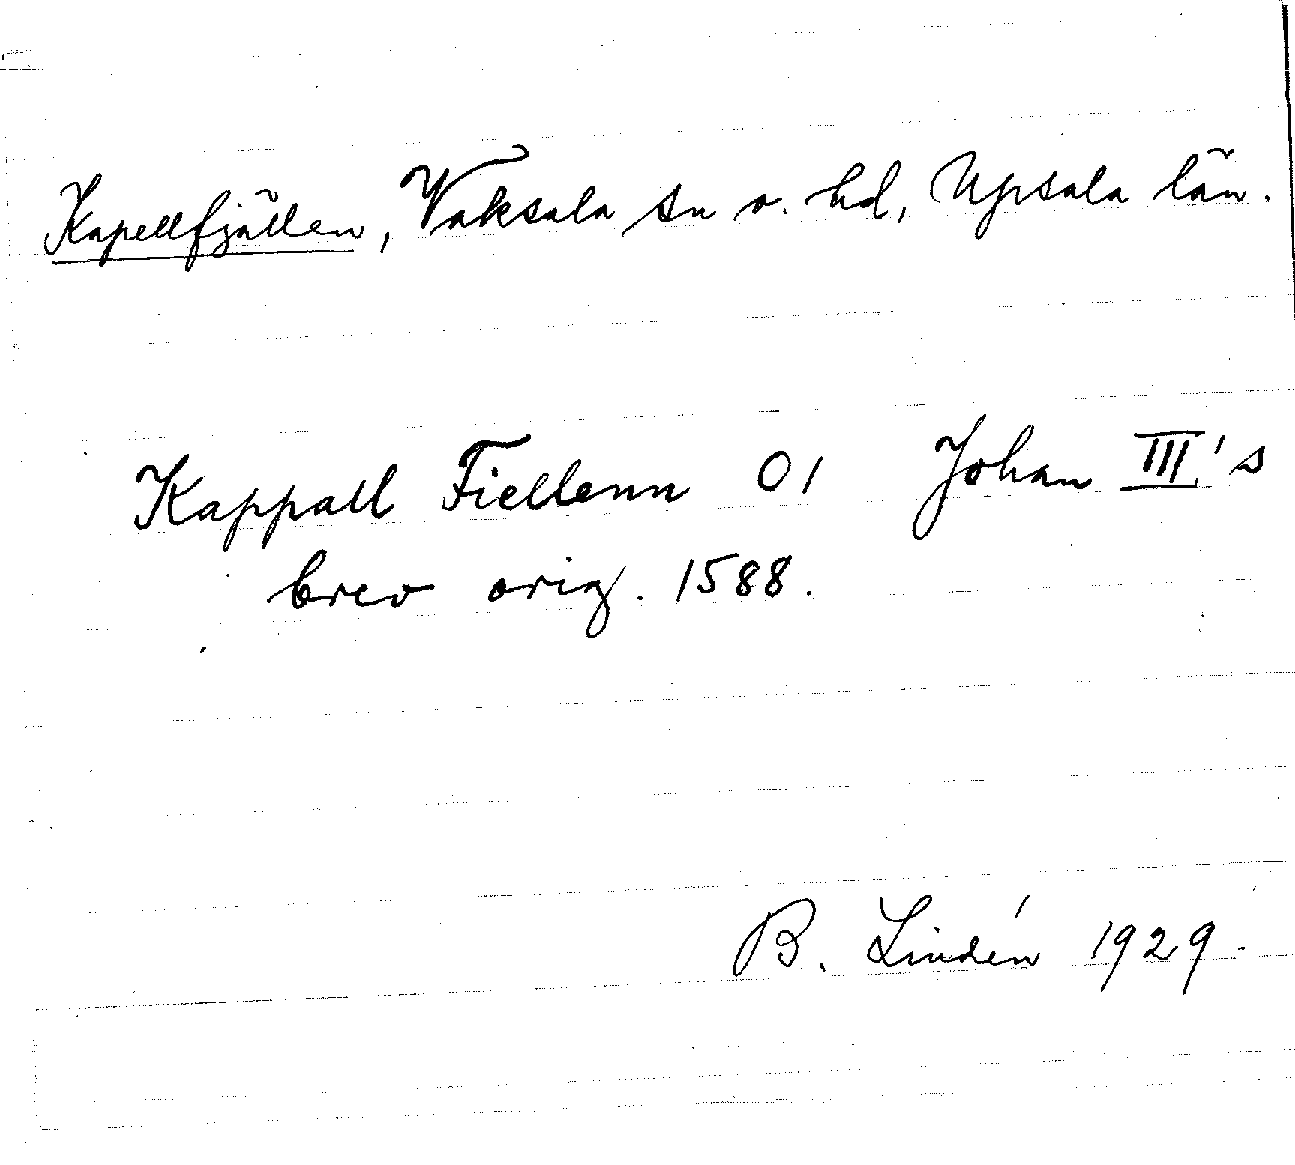 Kapellfjällen, Vaksala sn o. hd, Upsala län.
Kappall Fiellenn 01 Johan III's
brev orig. 1588.
B. Lindén 1929.